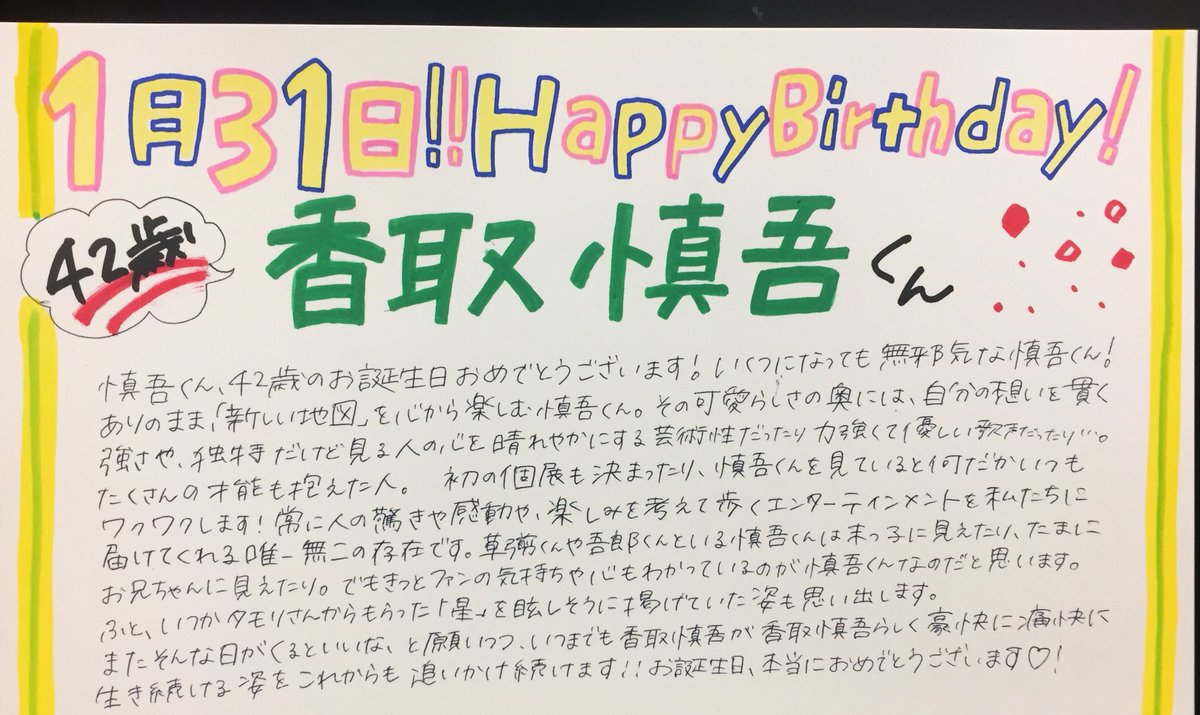 1月31日!!Happy Birthday!
42歳
香取慎吾くん
慎吾くん、42歳のお誕生日おめでとうございます!いくつになっても無邪気な慎吾くん!
ありのまま、「新しい地図」を心から楽しむ慎吾くん。その可愛らしさの奥には、自分の想いを貫く
強さや、独特だけど見る人の心を晴れやかにする芸術性だったり力強くて優しい歌声だったり…。
たくさんの才能も抱えた人。 初の個展も決まったり、慎吾くんを見ていると何だかいつも
ワクワクします!常に人の驚きや感動や、楽しみを考えて歩くエンターティンメントを私たちに
届けてくれる唯一無二の存在です。草彅くんや吾郎くんといる慎吾くんは末っ子に見えたり、たまに
お兄ちゃんに見えたり。でもきっとファンの気持ちや心もわかっているのが慎吾くんなのだと思います。
ふと、いつかタモリさんからもらった「星」を眩しそうに掲げていた姿も思い出します。
またそんな日がくるといいな、と願いつつ、いつまでも香取慎吾が香取慎吾らしく豪快に痛快に
生き続ける姿をこれからも追いかけ続けます!!お誕生日、本当におめでとうございます♡!